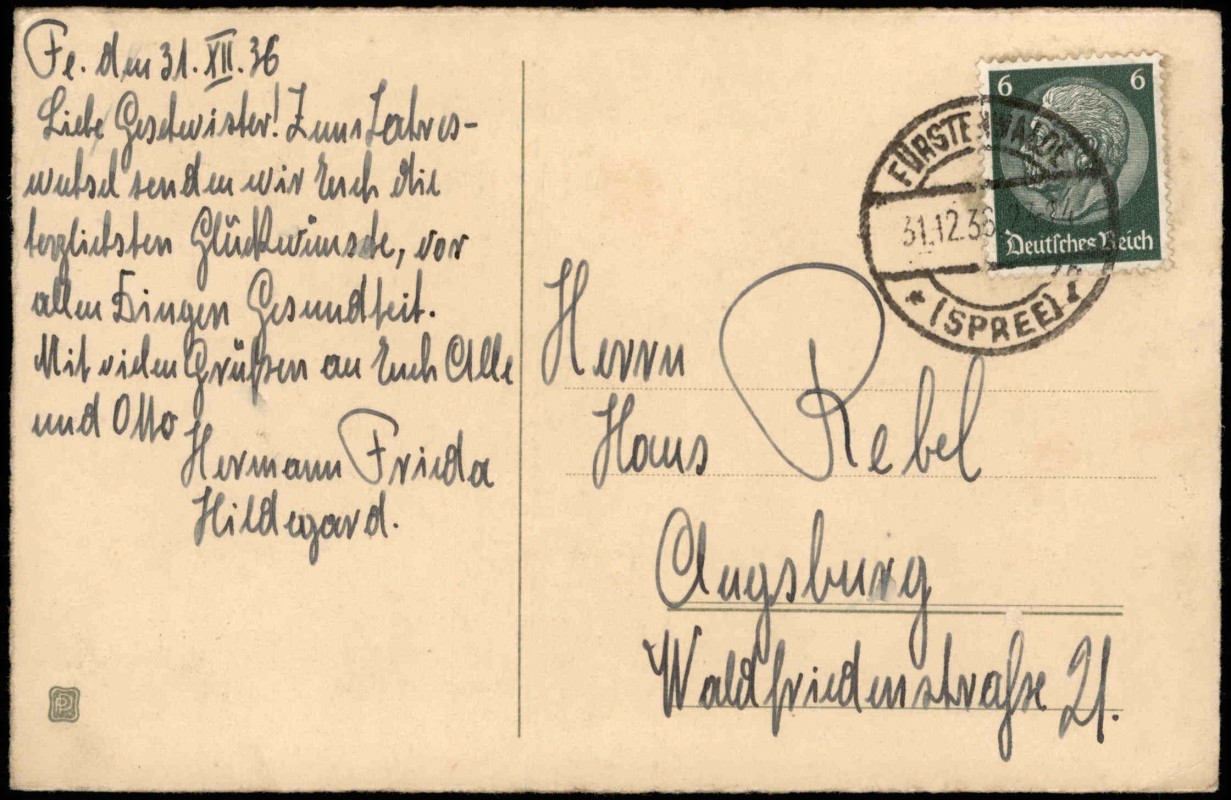 Fe. den 31. XII. 36
Liebe Geschwister! Zum Jahres-
wechsel senden wir Euch die
herzlichsten Glückwünsche, vor
allen Dingen Gesundheit.
Mit vielen Grüßen an Euch Alle
und Otto
Hermann Frieda
Hildegard.
6 6
Deutsches Reich
FÜRSTENWALDE
31.12.36
* (SPREE)
Herrn
Hans Rebel
Augsburg
Waldfriedenstraße 21.